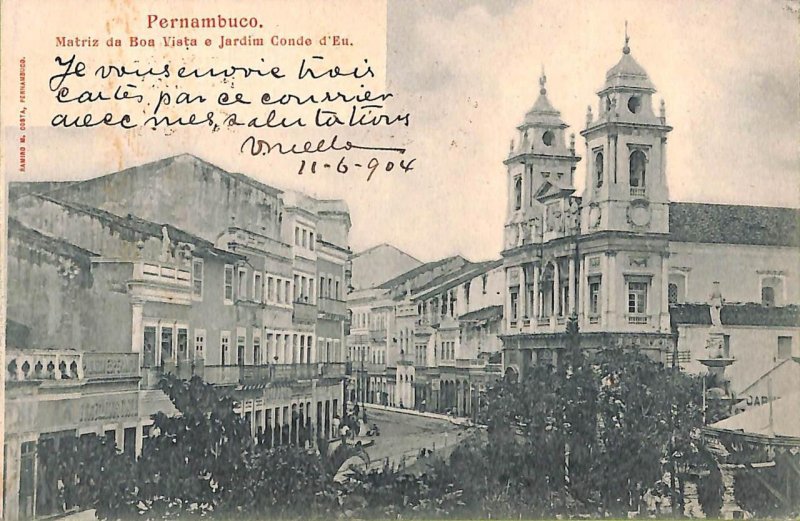 Pernambuco.
Matriz da Boa Vista e Jardim Conde d'Eu.
Je vous envoie trois
cartes par ce courrier
avec mes salutations
11-6-904
RAMIRO M. COSTA, PERNAMBUCO.
JARD